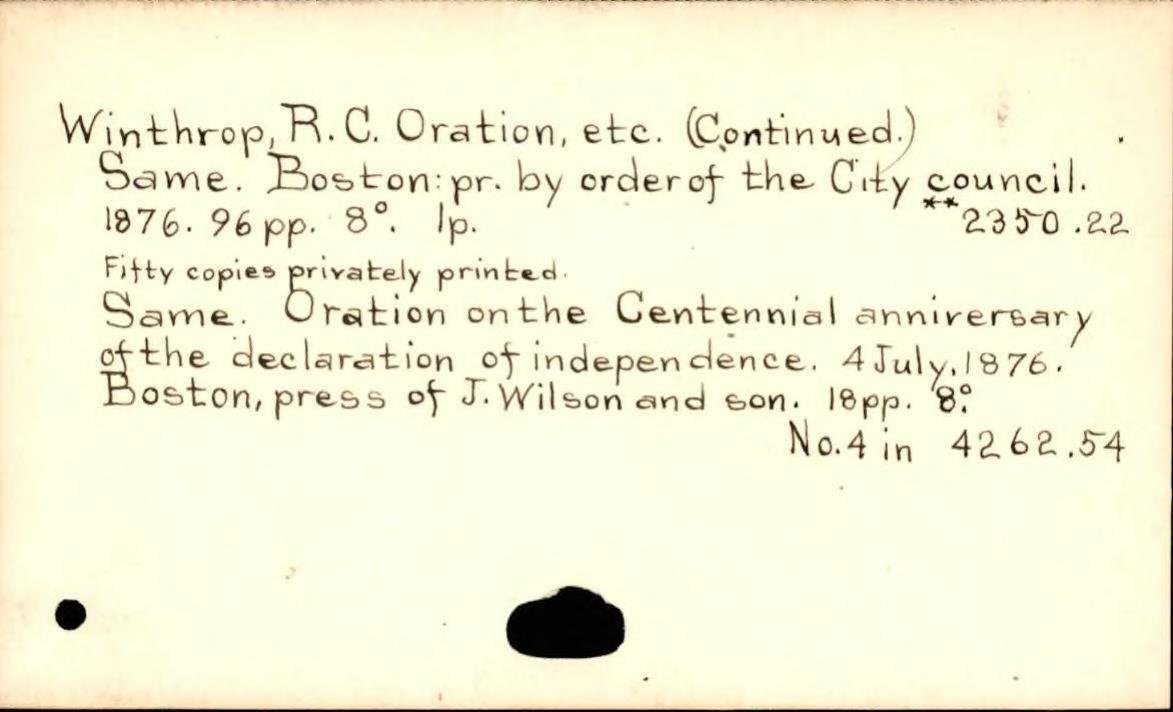 Winthrop, R. C. Oration, etc. (Continued.)
Same. Boston: pr. by order of the City council.
1876. 96 pp. 8°. 1p. **2350.22
Fifty copies privately printed.
Same. Oration on the Centennial anniversary
of the declaration of independence. 4 July, 1876.
Boston, press of J. Wilson and son. 18 pp. 8°.
No. 4 in 4262.54